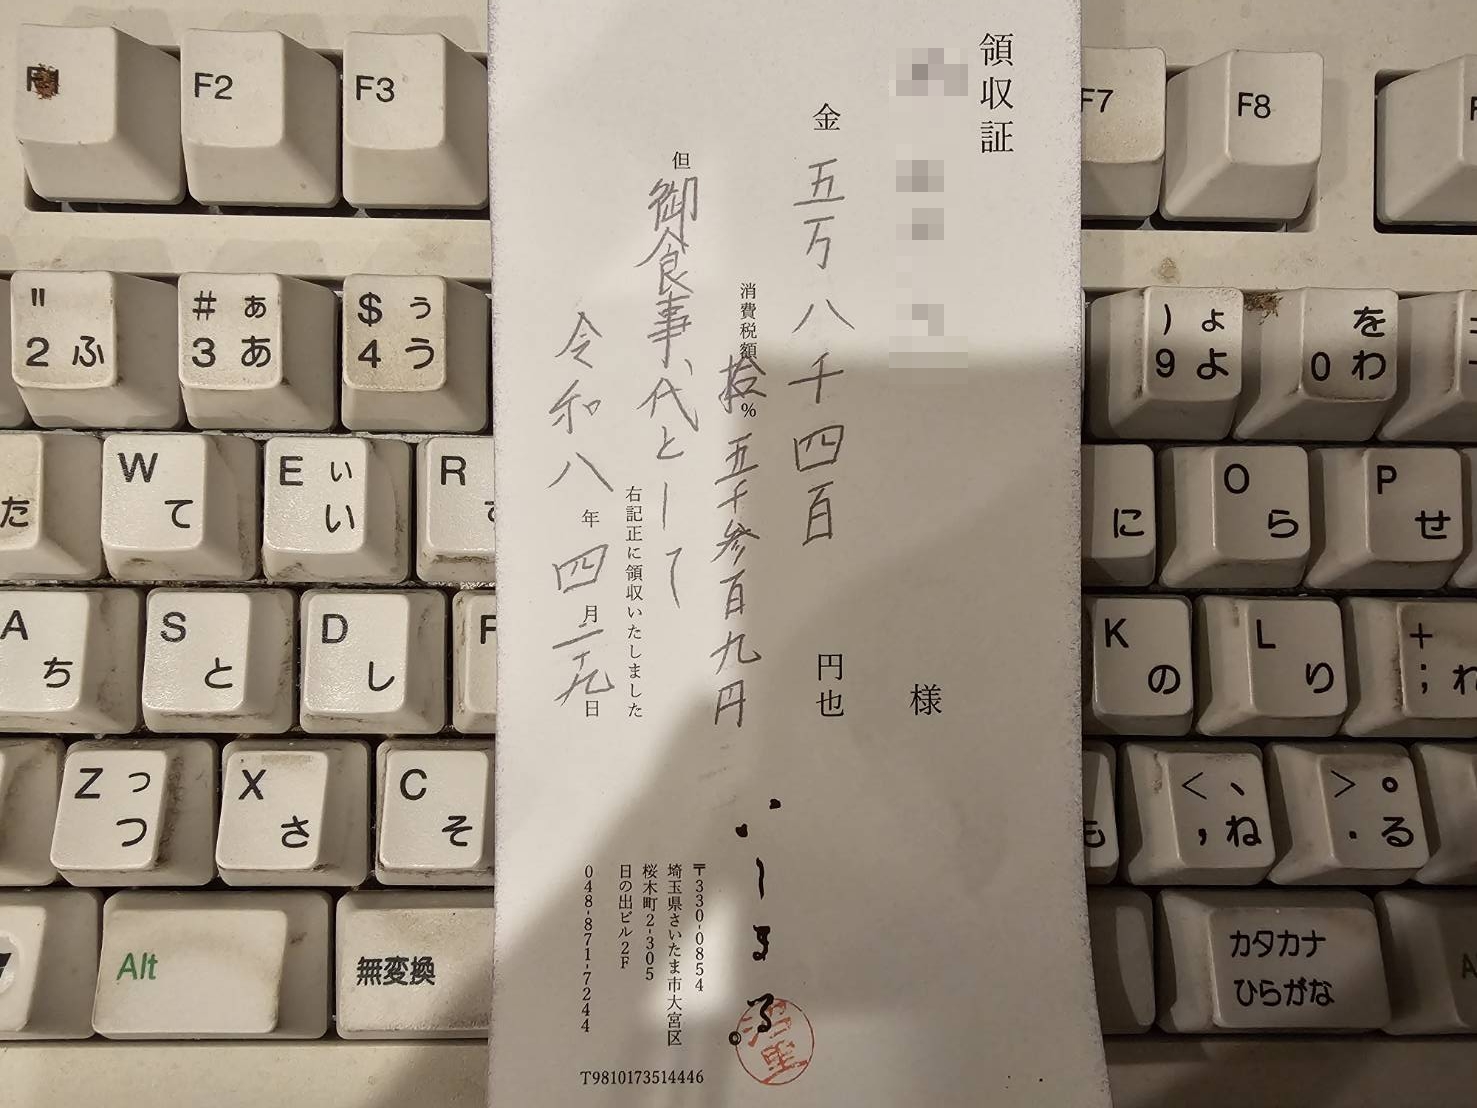 領収証
様
金 五万八千四百 円也
消費税額 拾% 五千参百九円
但 御食事代として
右記正に領収いたしました
令和八年四月二十九日
〒330-0854
埼玉県さいたま市大宮区
桜木町2-305
日の出ビル2F
048-871-7244
T9810173514446
F2
F3
F7
F8
" 2 ふ
# ぁ 3 あ
$ ぅ 4 う
) ょ 9 よ
を 0 わ
た
W て
E ぃ い
R
に
O ら
P せ
A ち
S と
D し
K の
L り
+ ; れ
Z っ つ
X さ
C そ
も
< 、 , ね
> 。 . る
Alt
無変換
カタカナ
ひらがな